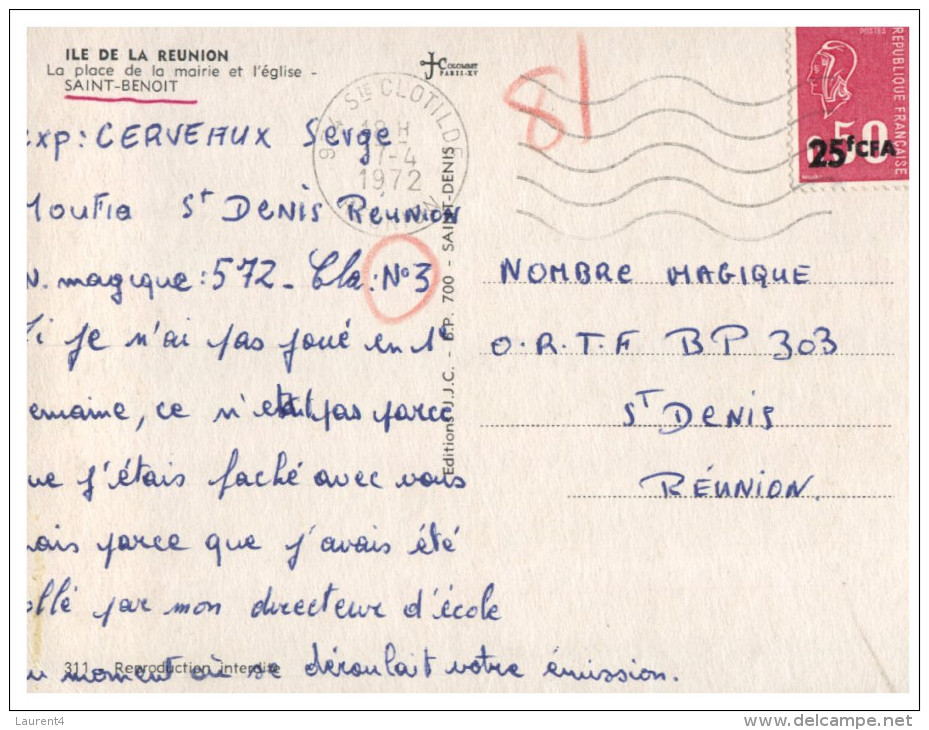 ILE DE LA REUNION
La place de la mairie et l'église -
SAINT-BENOIT
COLOMBET
PARIS-XV
STE CLOTILDE
18 H
7-4
1972
81
POSTES
REPUBLIQUE FRANÇAISE
0,50
25 fCFA
exp: CERVEAUX Serge
MOUFIA ST DENIS REUNION
N. magique: 572 - Cla: N°3
Si je n'ai pas joué en 1e
semaine, ce n'était pas parce
que j'étais faché avec vous
mais parce que j'avais été
collé par mon directeur d'école
au moment où se déroulait votre émission.
311 - Reproduction interdite
Editions U.J.C. - B.P. 700 - SAINT-DENIS
NOMBRE MAGIQUE
O.R.T.F BP 303
ST DENIS
RÉUNION.
Laurent4
www.delcampe.net